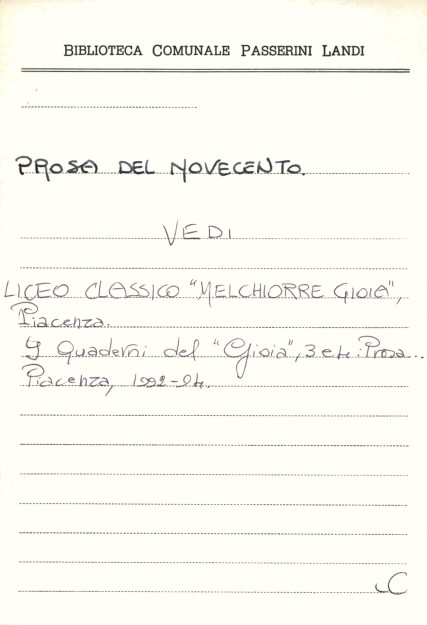 BIBLIOTECA COMUNALE PASSERINI LANDI
PROSA DEL NOVECENTO.
VEDI
LICEO CLASSICO "MELCHIORRE GIOIA",
Piacenza.
I Quaderni del "Gioia", 3 e 4: Prosa..
Piacenza, 1992-94.
C